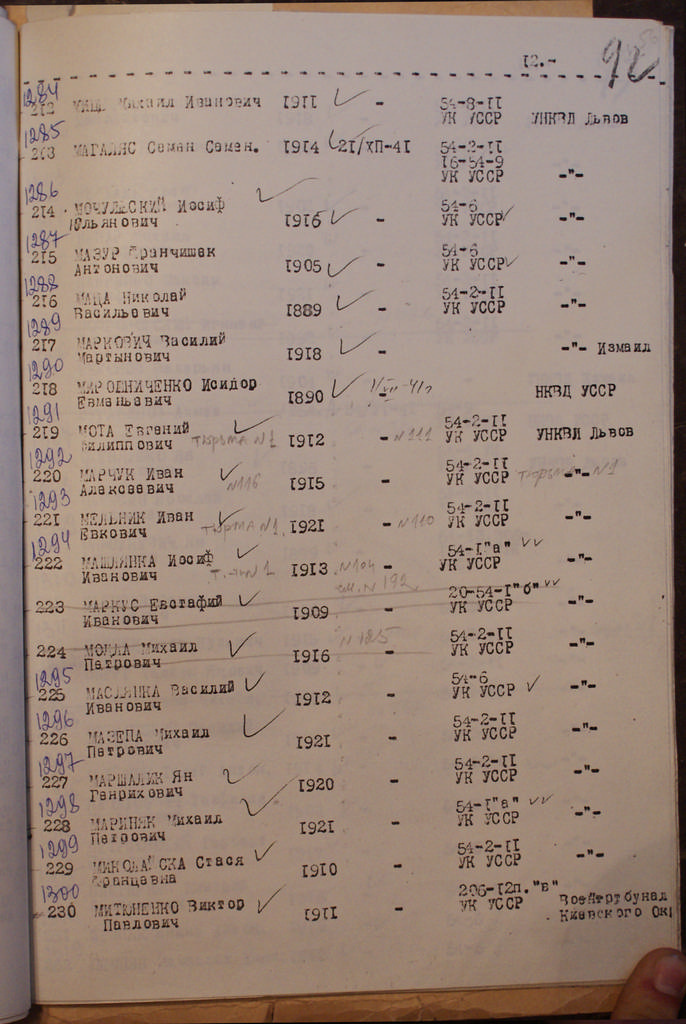 12.-
92
1284
212 Михаил Иванович 1911 - 54-8-II УНКВД Львов
УК УССР
1285
213 МАГАЛЯС Семен Семен. 1914 21/ХП-41 54-2-II
16-54-9
УК УССР -"-
1286
214 МОЧУЛЬСКИЙ Иосиф 1916 - 54-6 -"-
Юльянович УК УССР
1287
215 МАЗУР Франчишек 1905 - 54-6 -"-
Антонович УК УССР
1288
216 МАЦА Николай 1889 - 54-2-II -"-
Васильевич УК УССР
1289
217 МАРКОВИЧ Василий 1918 - -"- Измаил
Мартынович
1290
218 МИРОШНИЧЕНКО Исидор 1890 - НКВД УССР
Евманьевич
1291
219 МОТА Евгений 1912 - N111 54-2-II УНКВД Львов
Филиппович тюрьма N1 УК УССР
1292
220 МАРЧУК Иван 1915 54-2-II тюрьма N1 -"-
Алексеевич N116 УК УССР
1293
221 МЕЛЬНИК Иван 1921 - N110 54-2-II -"-
Евкович тюрма N1. УК УССР
1294
222 МАШЛЯНКА Иосиф 1913 N104 54-I"а" -"-
Иванович УК УССР
см. N192
223 МАРКУС Евстафий 1909 - 20-54-I"б" -"-
Иванович УК УССР
224 Михаил 1916 N185 - 54-2-II -"-
Петрович УК УССР
1295
225 МАСЛЯНКА Василий 1912 - 54-6 -"-
Иванович УК УССР
1296
226 МАЗЕПА Михаил 1921 - 54-2-II -"-
Петрович УК УССР
1297
227 МАРШАЛИК Ян 1920 - 54-2-II -"-
Генрихович УК УССР
1298
228 МАРИНЯК Михаил 1921 - 54-I"а" -"-
Петрович УК УССР
1299
229 МИКОЛАЙСКА Стася 1910 - 54-2-II -"-
Францевна УК УССР
1300
230 МИТЮНЕНКО Виктор 1911 - 206-12п."в" Воентрибунал
Павлович УК УССР Киевского Ок